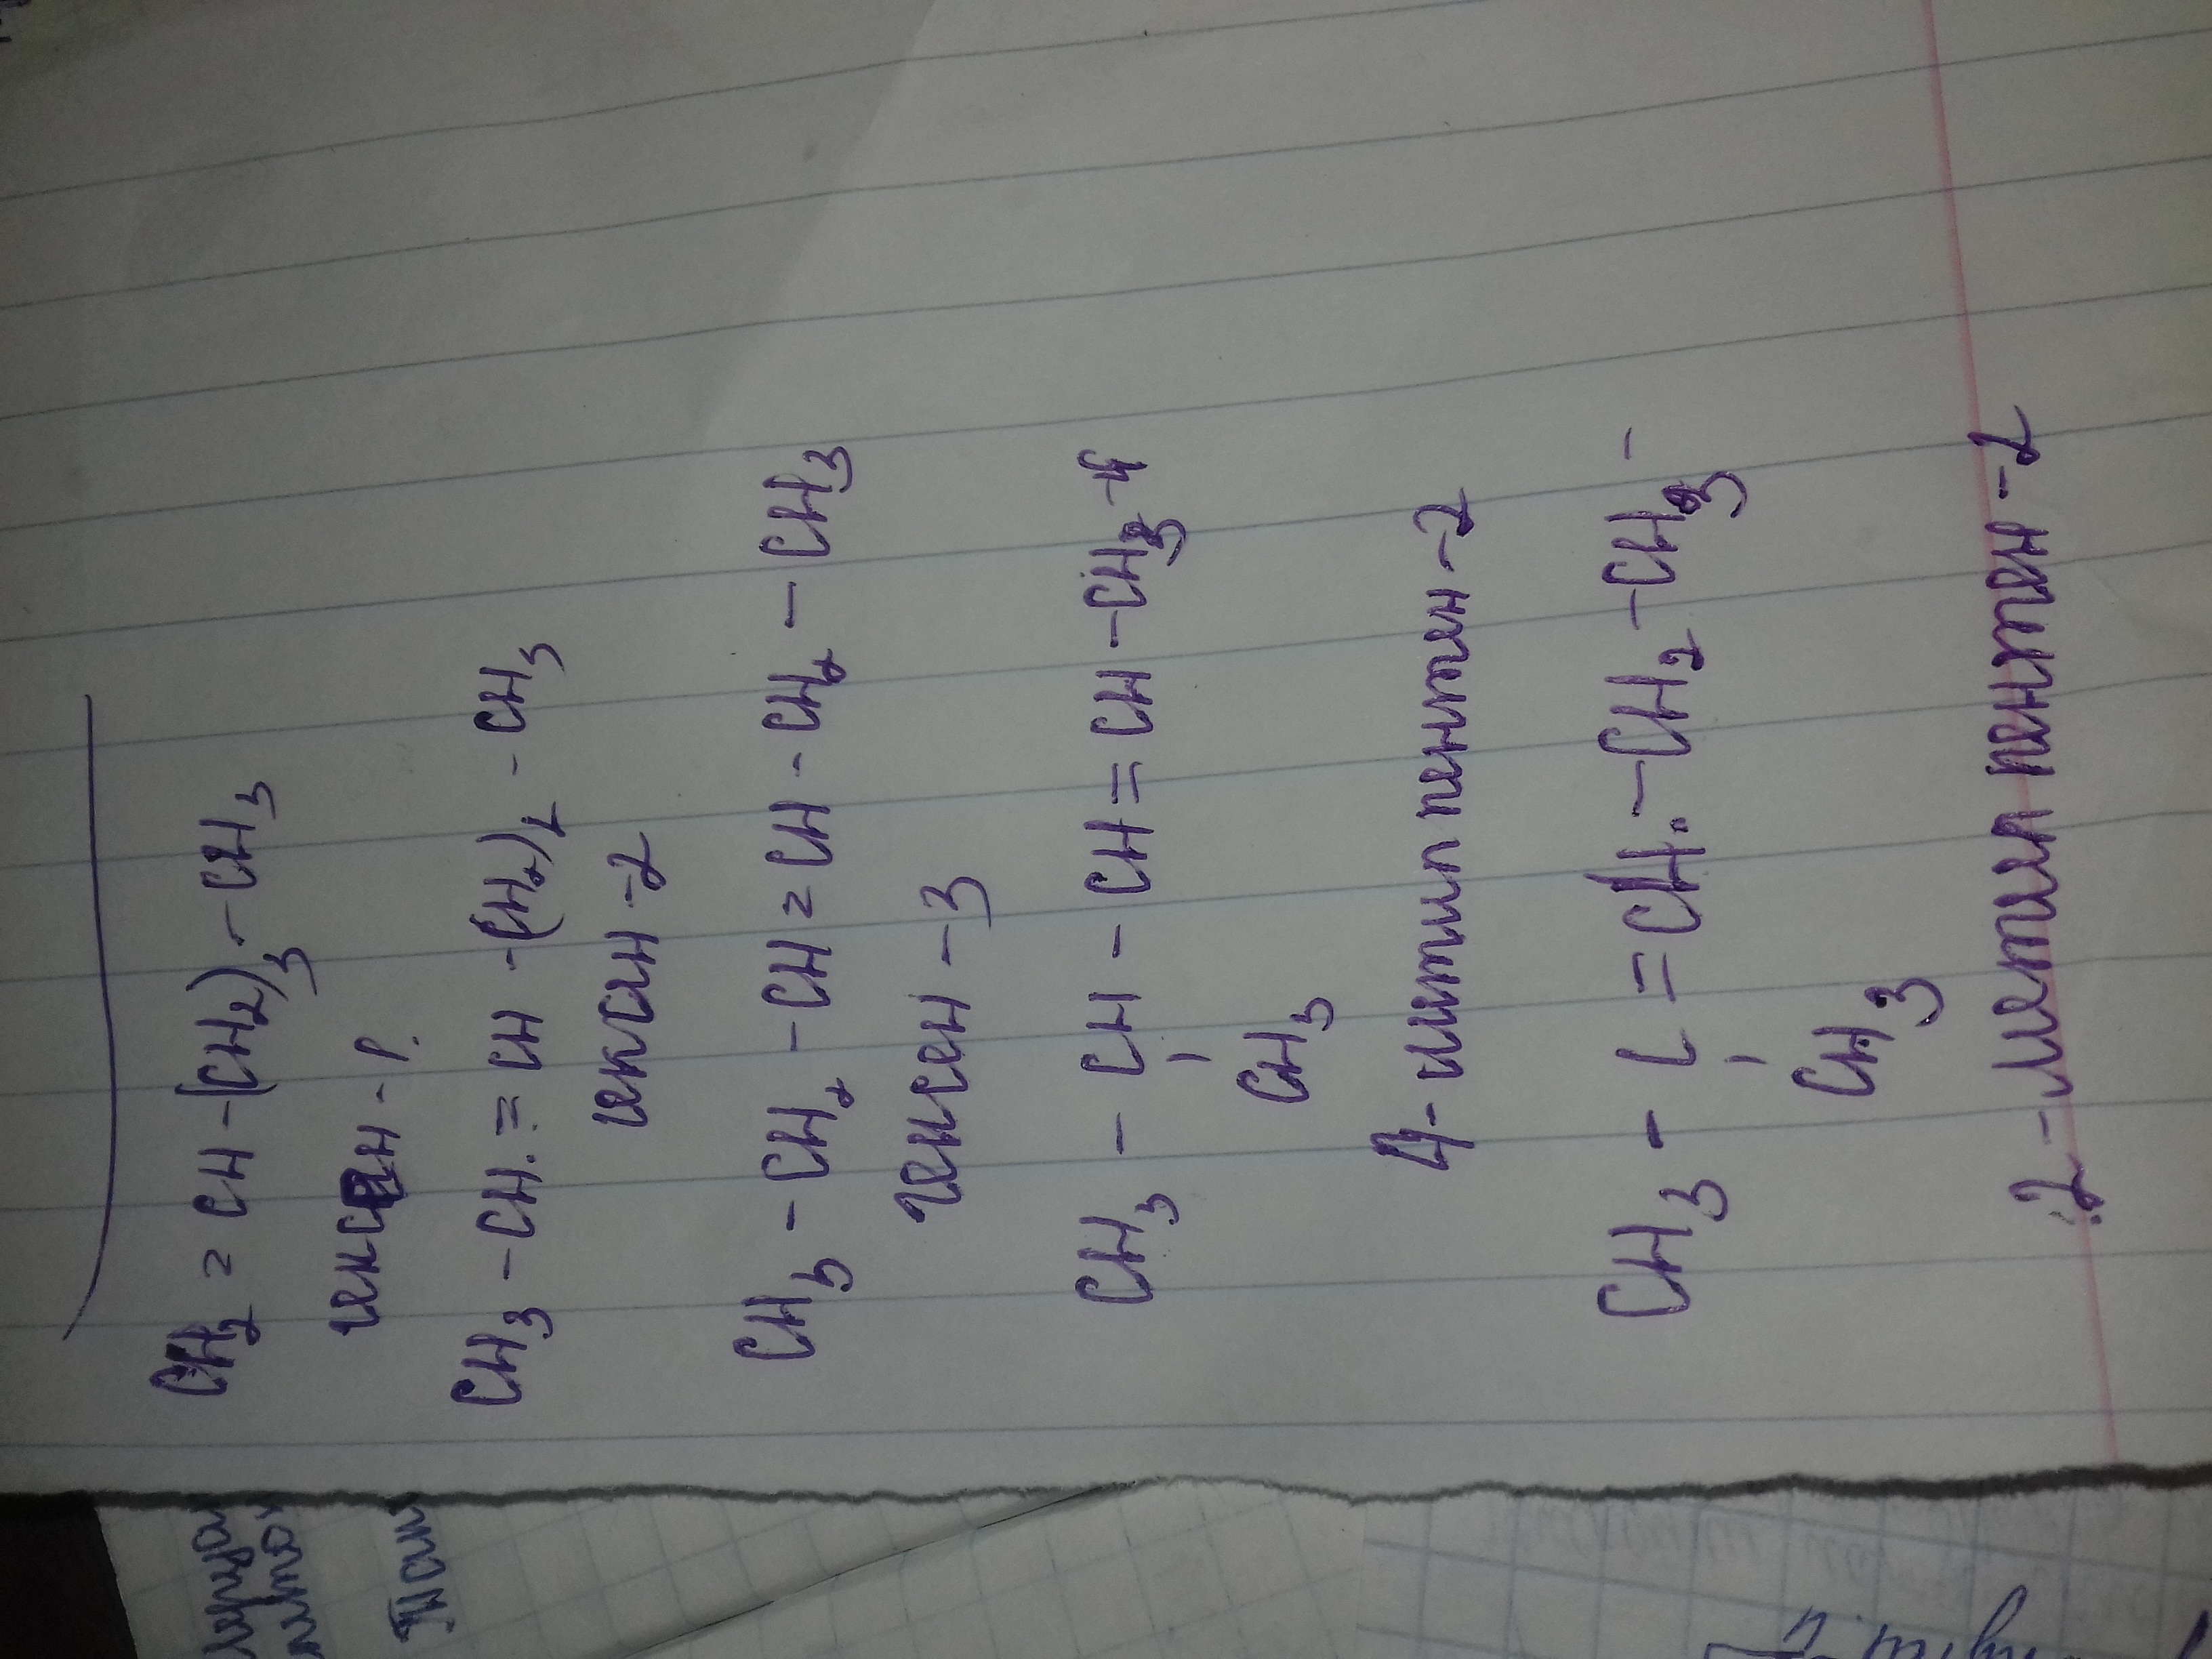 CH2 = CH - (CH2)3 - CH3
гексен - 1.
CH3 - CH = CH - (CH2)2 - CH3
гексен - 2
CH3 - CH2 - CH = CH - CH2 - CH3
гексен - 3
CH3 - CH - CH = CH - CH3
CH3
4 - метил пентен - 2
CH3 - C = CH - CH2 - CH3 -
CH3
2 - метил пентен - 2